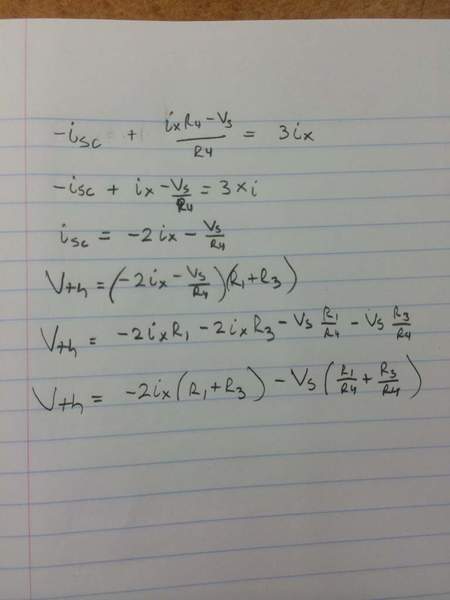 -isc + (ixR4 - Vs)/R4 = 3ix
-isc + ix - Vs/R4 = 3xi
isc = -2ix - Vs/R4
Vth = (-2ix - Vs/R4)(R1 + R3)
Vth = -2ixR1 - 2ixR3 - Vs R1/R4 - Vs R3/R4
Vth = -2ix(R1 + R3) - Vs(R1/R4 + R3/R4)